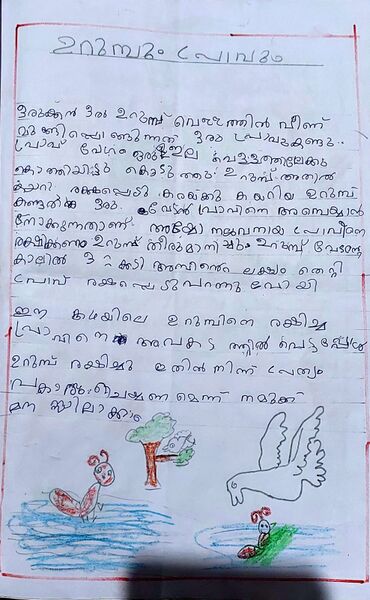 ഉറുമ്പും പ്രാവും
ഒരിക്കൽ ഒരു ഉറുമ്പ് വെള്ളത്തിൽ വീണ്
മുങ്ങിപ്പൊങ്ങുന്നത് ഒരു പ്രാവുകണ്ടു..
പ്രാവ് വേഗം ഒരു ഇല വെള്ളത്തിലേക്കു
കൊത്തിയിട്ടു കൊടുത്തു. ഉറുമ്പ് അതിൽ
കയറി രക്ഷപ്പെട്ടു. കരയ്ക്കു കയറിയ ഉറുമ്പ്
കണ്ടത് ഒരു വേടൻ പ്രാവിനെ അമ്പെയ്യാൻ
നോക്കുന്നതാണ്. അയ്യോ നല്ലവനായ പ്രാവിനെ
രക്ഷിക്കണം ഉറുമ്പ് തീരുമാനിച്ചു. ഉറുമ്പ് വേടന്റെ
കാലിൽ കടി അമ്പിൻ്റെ ലക്ഷ്യം തെറ്റി
പ്രാവ് രക്ഷപ്പെട്ടുപറന്നു പോയി
ഈ കഥയിലെ ഉറുമ്പിനെ രക്ഷിച്ച
പ്രാവിനെ അപകടത്തിൽ പെട്ടപ്പോൾ
ഉറുമ്പ് രക്ഷിച്ചു ഇതിൽ നിന്ന്
ചെയ്യണമെന്ന് നമുക്ക്
മനസ്സിലാക്കാം